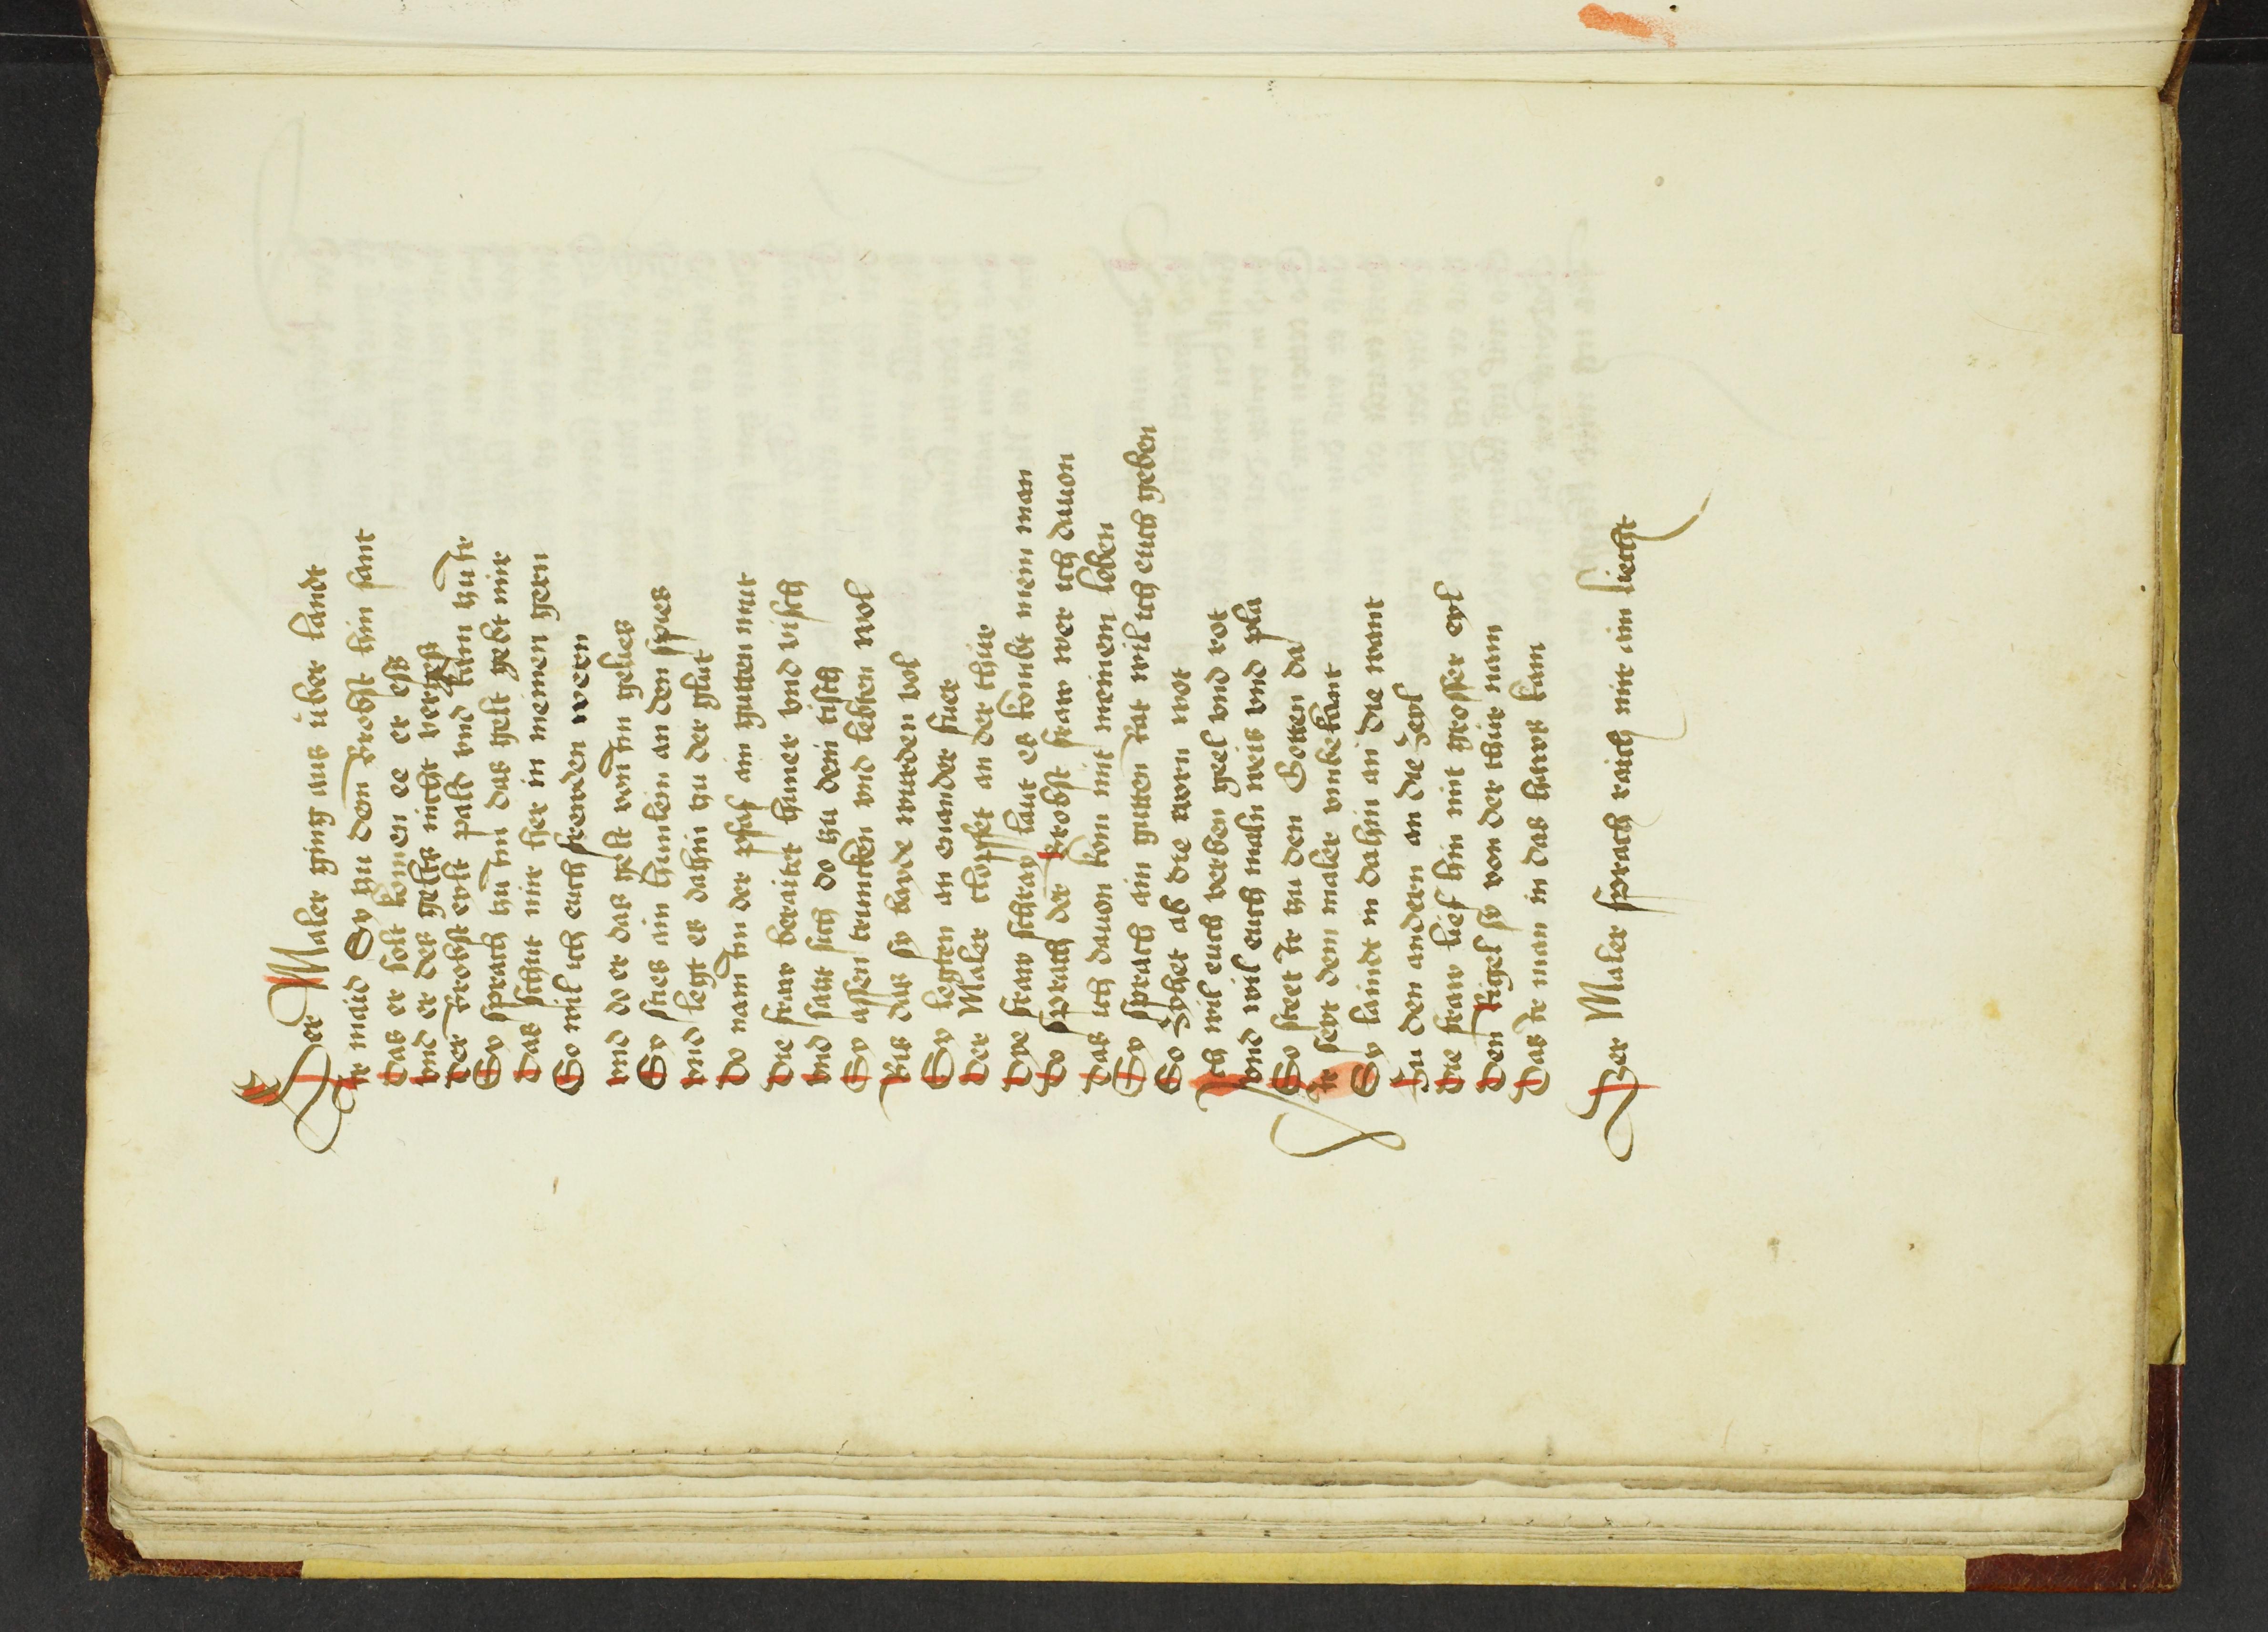 Der Maler ging aus über landt
Ir maid Sy zu dem Brobst hin sant
Das er solt komen ee er eß
vnd er des geltz nicht vergeß
Der Brobst eylt pald vnd kam zu Ir
Sy sprach zu Im das gelt gebt mir
Das schut mir her in meinen gern
So wil ich euch frewden wern
vnd do er das gelt von Im gelies
Sy sties ain hunlein an den spies
vnd legt es dahin zu der glut
Do nam Im der pfaf ain gutten mut
Die fraw beraitet huner vnd visch
vnd satzt sich do zu dem tisch
Sy assen truncken vnd lebten wol
Bis das sy bayde wurden vol
Sy legten an enander fuer
Der Maler clopffet an der thür
Dye fraw schray laut es kombt mein man
Do sprach der Brobst fraw wer ich dauon
Das ich dauon kom mit meinem leben
Sy sprach ain gutten Rat wil ich euch geben
So zyhet ab die worn wot
Ich wil euch verben geel vnd rot
vnd wil euch maln weis vnd pla
So steet Ir zu den Gotten da
Ir seyt dem maler vnbekant
Sy laindt in dahin an die want
Zu den andern an die Zeyl
Die fraw lief hin mit grosser eyl
Den Rigel sy von der thür nam
Das Ir man in das haws kam
Der Maler sprach raich mir ain liecht